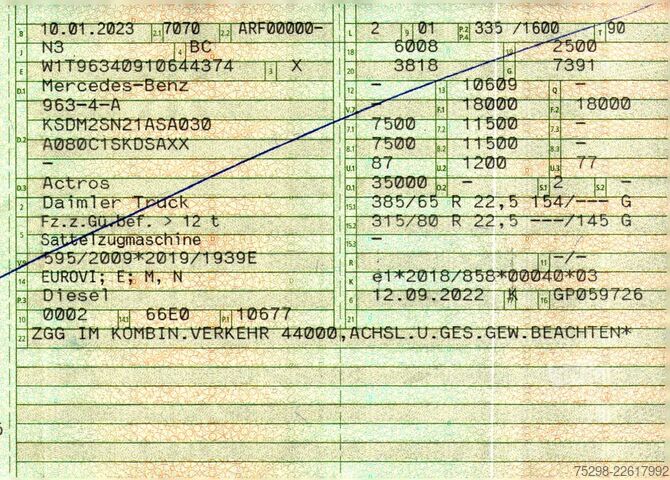 B 10.01.2023 2.1 7070 2.2 ARF00000-
J N3 4 BC
E W1T96340910644374 3 X
D.1 Mercedes-Benz
963-4-A
D.2 KSDM2SN21ASA030
A080C1SKDSAXX
–
D.3 Actros
2 Daimler Truck
5 Fz.z.Gü.bef. > 12 t
Sattelzugmaschine
V.9 595/2009*2019/1939E
14 EUROVI; E; M, N
P.3 Diesel
10 0002 14.1 66E0 P.1 10677
L 2 9 01 P.2 P.4 335 /1600 T 90
18 6008 19 2500
20 3818 G 7391
12 – 13 10609 Q –
V.7 – F.1 18000 F.2 18000
7.1 7500 7.2 11500 7.3 –
8.1 7500 8.2 11500 8.3 –
U.1 87 U.2 1200 U.3 77
O.1 35000 O.2 – S.1 2 S.2 –
15.1 385/65 R 22,5 154/--- G
15.2 315/80 R 22,5 ---/145 G
15.3 –
R 11 –/–
K e1*2018/858*00040*03
6 12.09.2022 17 K 16 GP059726
21
22 ZGG IM KOMBIN.VERKEHR 44000,ACHSL.U.GES.GEW.BEACHTEN*
75298-22617992